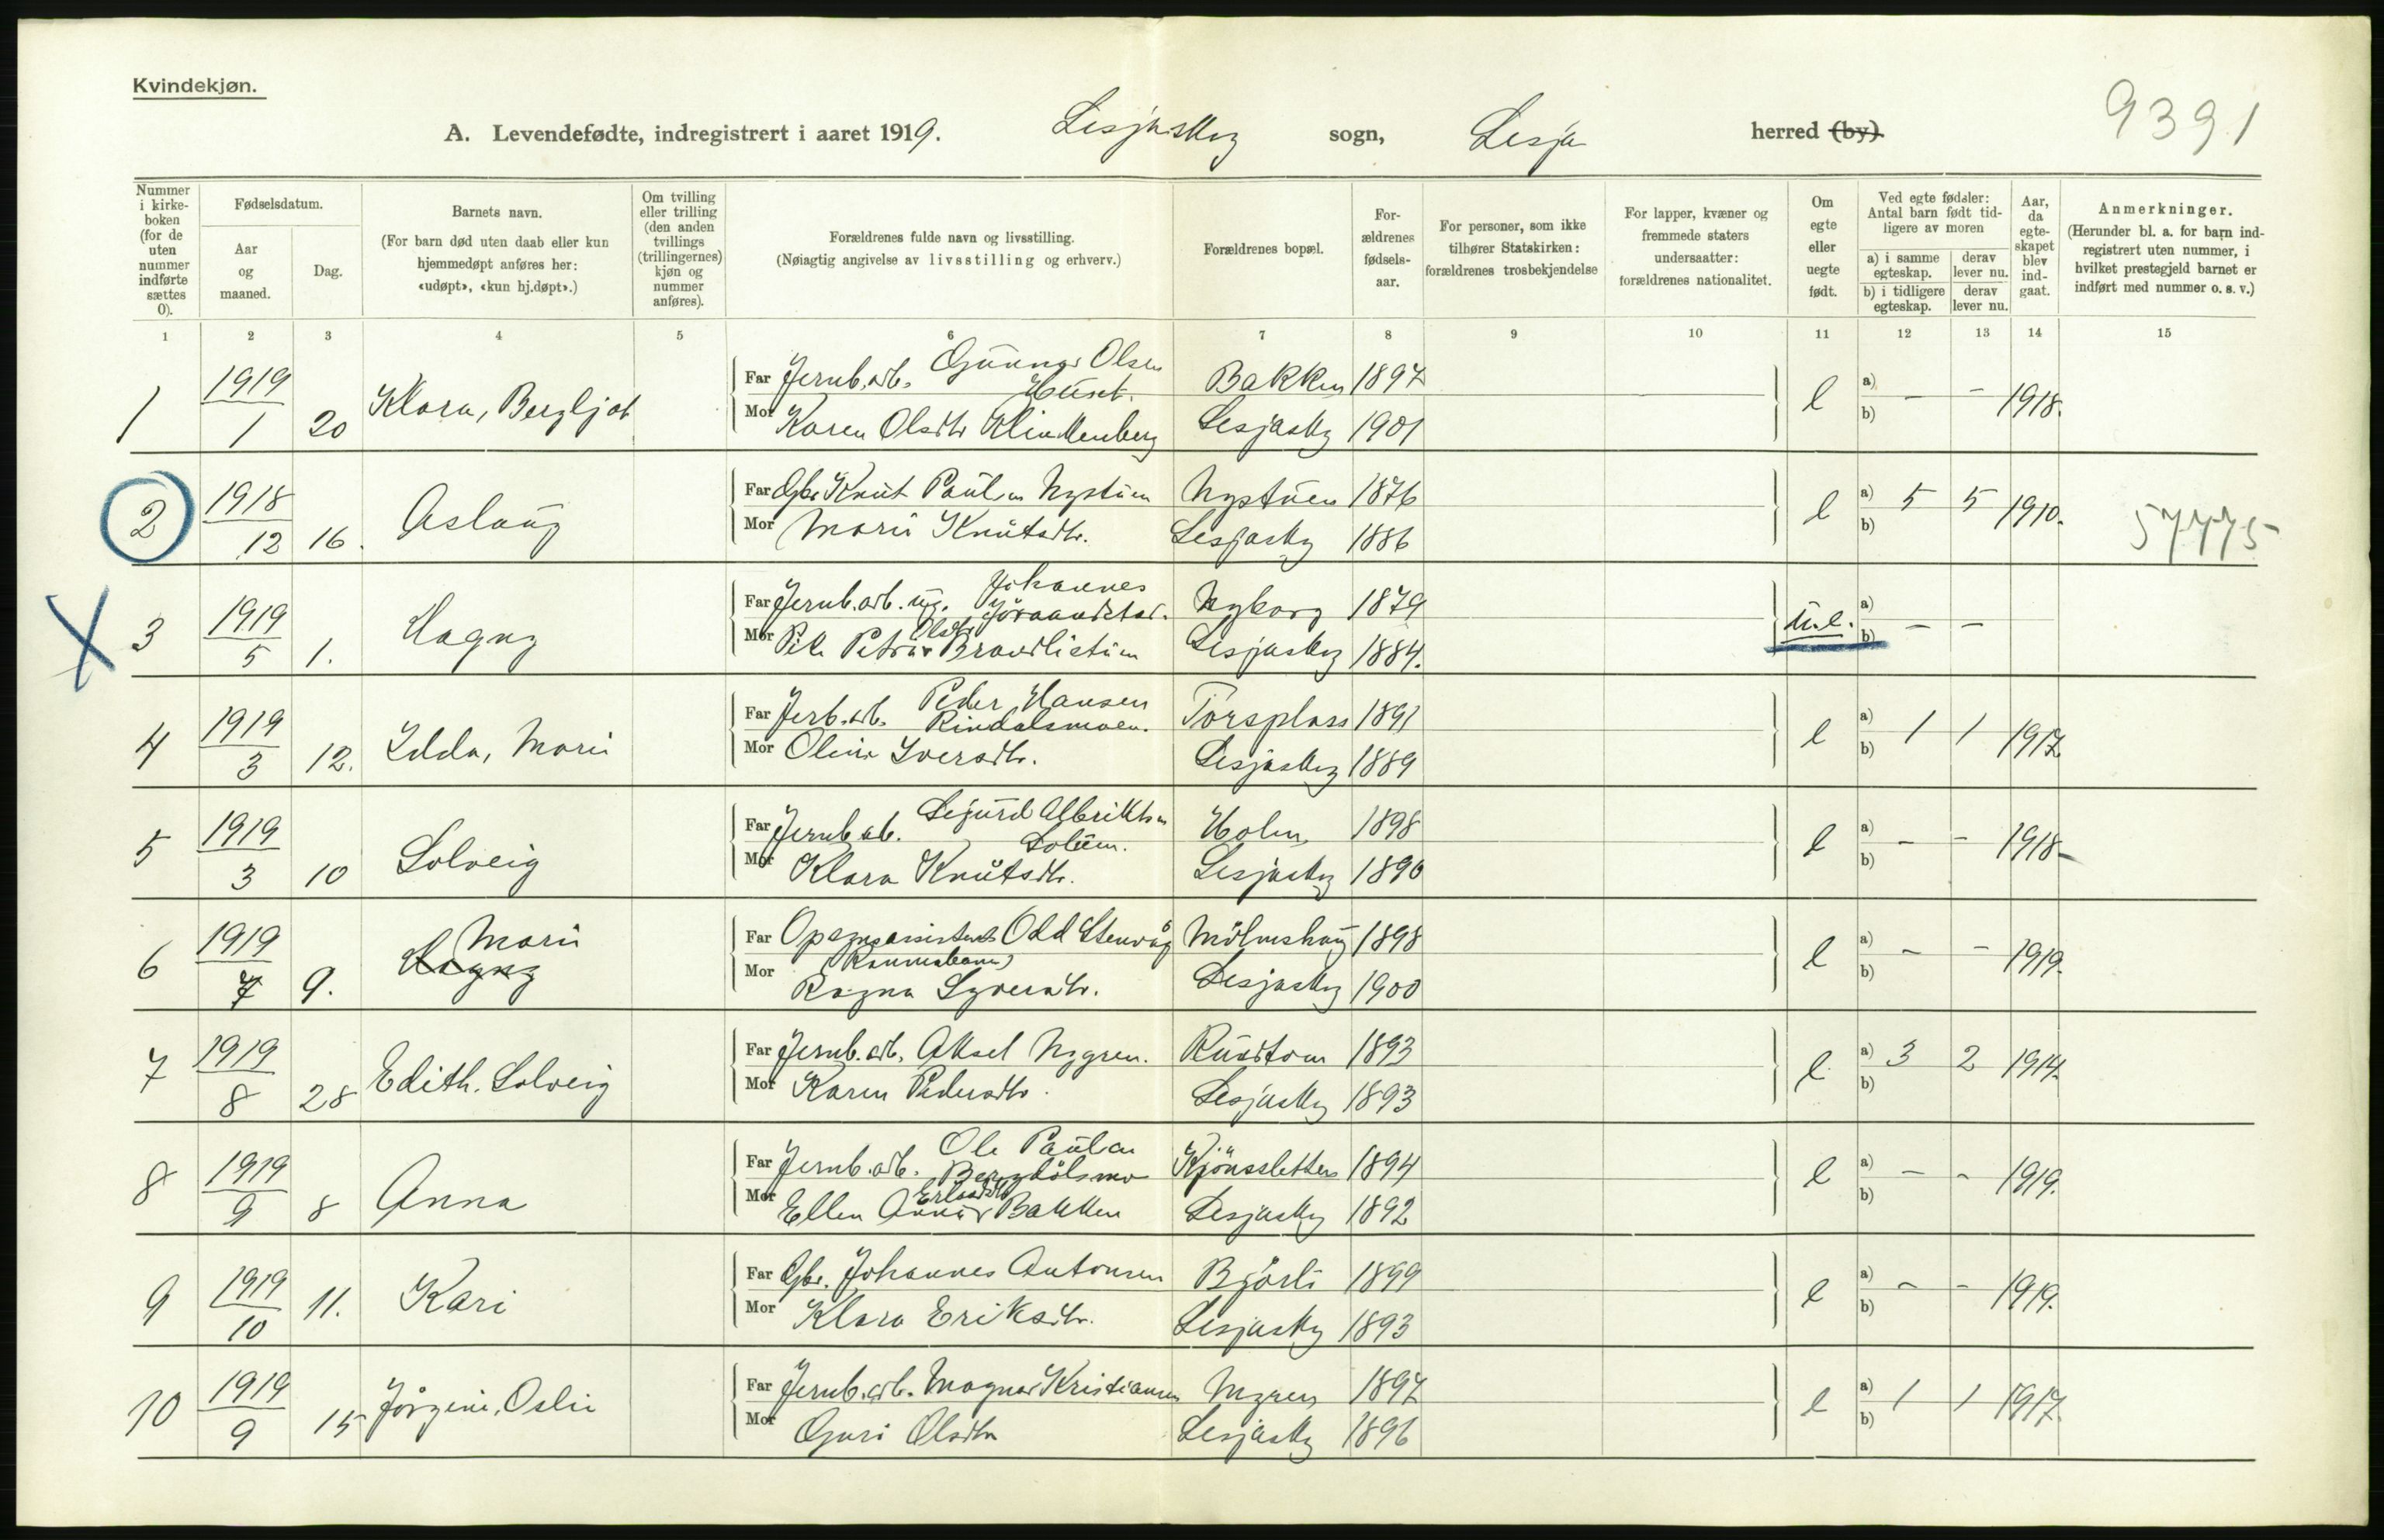 Kvindekjøn.
A. Levendefødte, indregistrert i aaret 1919. Lesjaskog sogn, Lesja herred (by).
9391
Nummer i kirke-boken (for de uten nummer indførte sættes 0).
Fødselsdatum.
Aar og maaned.
Dag.
Barnets navn.
(For barn død uten daab eller kun hjemmedøpt anføres her: «udøpt», «kun hj.døpt».)
Om tvilling eller trilling (den anden tvillings (trillingernes) kjøn og nummer anføres).
Forældrenes fulde navn og livsstilling.
(Nøiagtig angivelse av livsstilling og erhverv.)
Forældrenes bopæl.
For-ældrenes fødsels-aar.
For personer, som ikke tilhører Statskirken: forældrenes trosbekjendelse
For lapper, kvæner og fremmede staters undersaatter: forældrenes nationalitet.
Om egte eller uegte født.
Ved egte fødsler: Antal barn født tid-ligere av moren
a) i samme egteskap.
derav lever nu.
b) i tidligere egteskap.
derav lever nu.
Aar, da egte-skapet blev ind-gaat.
Anmerkninger.
(Herunder bl. a. for barn ind-registrert uten nummer, i hvilket prestegjeld barnet er indført med nummer o. s. v.)
1 2 3 4 5 6 7 8 9 10 11 12 13 14 15
1 1919 1 20 Klara, Bergljot
Far Jernb.arb. Gunnar Olsen Bakken 1897
Mor Karen Olsdtr Klinkenberg Lesjaskog 1901
e a) b) - - 1918.
2 1918 12 16. Aslaug
Far Gbr Knut Paulsen Nystuen Nystuen 1876
Mor Marie Knutsdtr. Lesjaskog 1886
e a) 5 5 b) 1910.
57775
3 1919 5 1. Magny
Far Jernb.arb. ug. Johannes Jöraandstad. Nyborg 1879
Mor Pike Petrine Olsdtr Brandlistuen Lesjaskog 1884.
u.e. a) b) - -
4 1919 3 12. Idda, Marie
Far Jerb.arb. Peder Hansen Rindalsmoen. Torsplass 1891
Mor Oline Iversdtr. Lesjaskog 1889
e a) b) 1 1 1917
5 1919 3 10 Solveig
Far Jernb.arb. Sigurd Albriktsen Solem. Holm 1898
Mor Klara Knutsdtr. Lesjaskog 1890
e a) b) - - 1918
6 1919 7 9. Marie Magny
Far Opsynsassistent Odd Stenvåg Mölmshaug 1898
(Raumabanen)
Mor Ragna Syversdtr. Lesjaskog 1900
e a) b) - - 1919.
7 1919 8 28 Edith. Solveig
Far Jernb.arb. Aksel Nygren. Rundtom 1893
Mor Karen Pedersdtr. Lesjaskog 1893
e a) 3 2 b) 1914.
8 1919 9 8 Anna
Far Jernb.arb. Ole Paulsen 1894
Mor Ellen Anna Erlandsdtr Bakken Lesjaskog 1892
e a) b) - - 1919.
9 1919 10 11. Kari
Far Gbr. Johannes Antonsen Bjorli 1899
Mor Klara Eriksdtr. Lesjaskog 1893
e a) b) - - 1919.
10 1919 9 15 Jörgine, Oslie
Far Jernb.arb. Magnar Kristiansen Nygren 1897
Mor Guri Olsdtr Lesjaskog 1896
e a) 1 1 b) 1917.